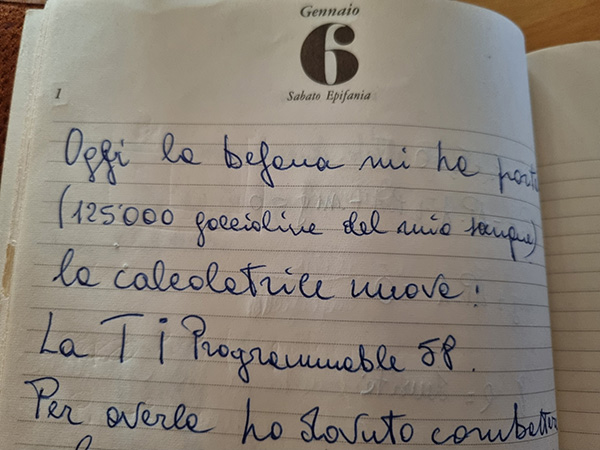 Gennaio
6
1
Sabato Epifania
Oggi la befana mi ha port
(125'000 goccioline del mio sangue)
la calcolatrice nuova:
La TI Programmable 58.
Per averla ho dovuto combatter